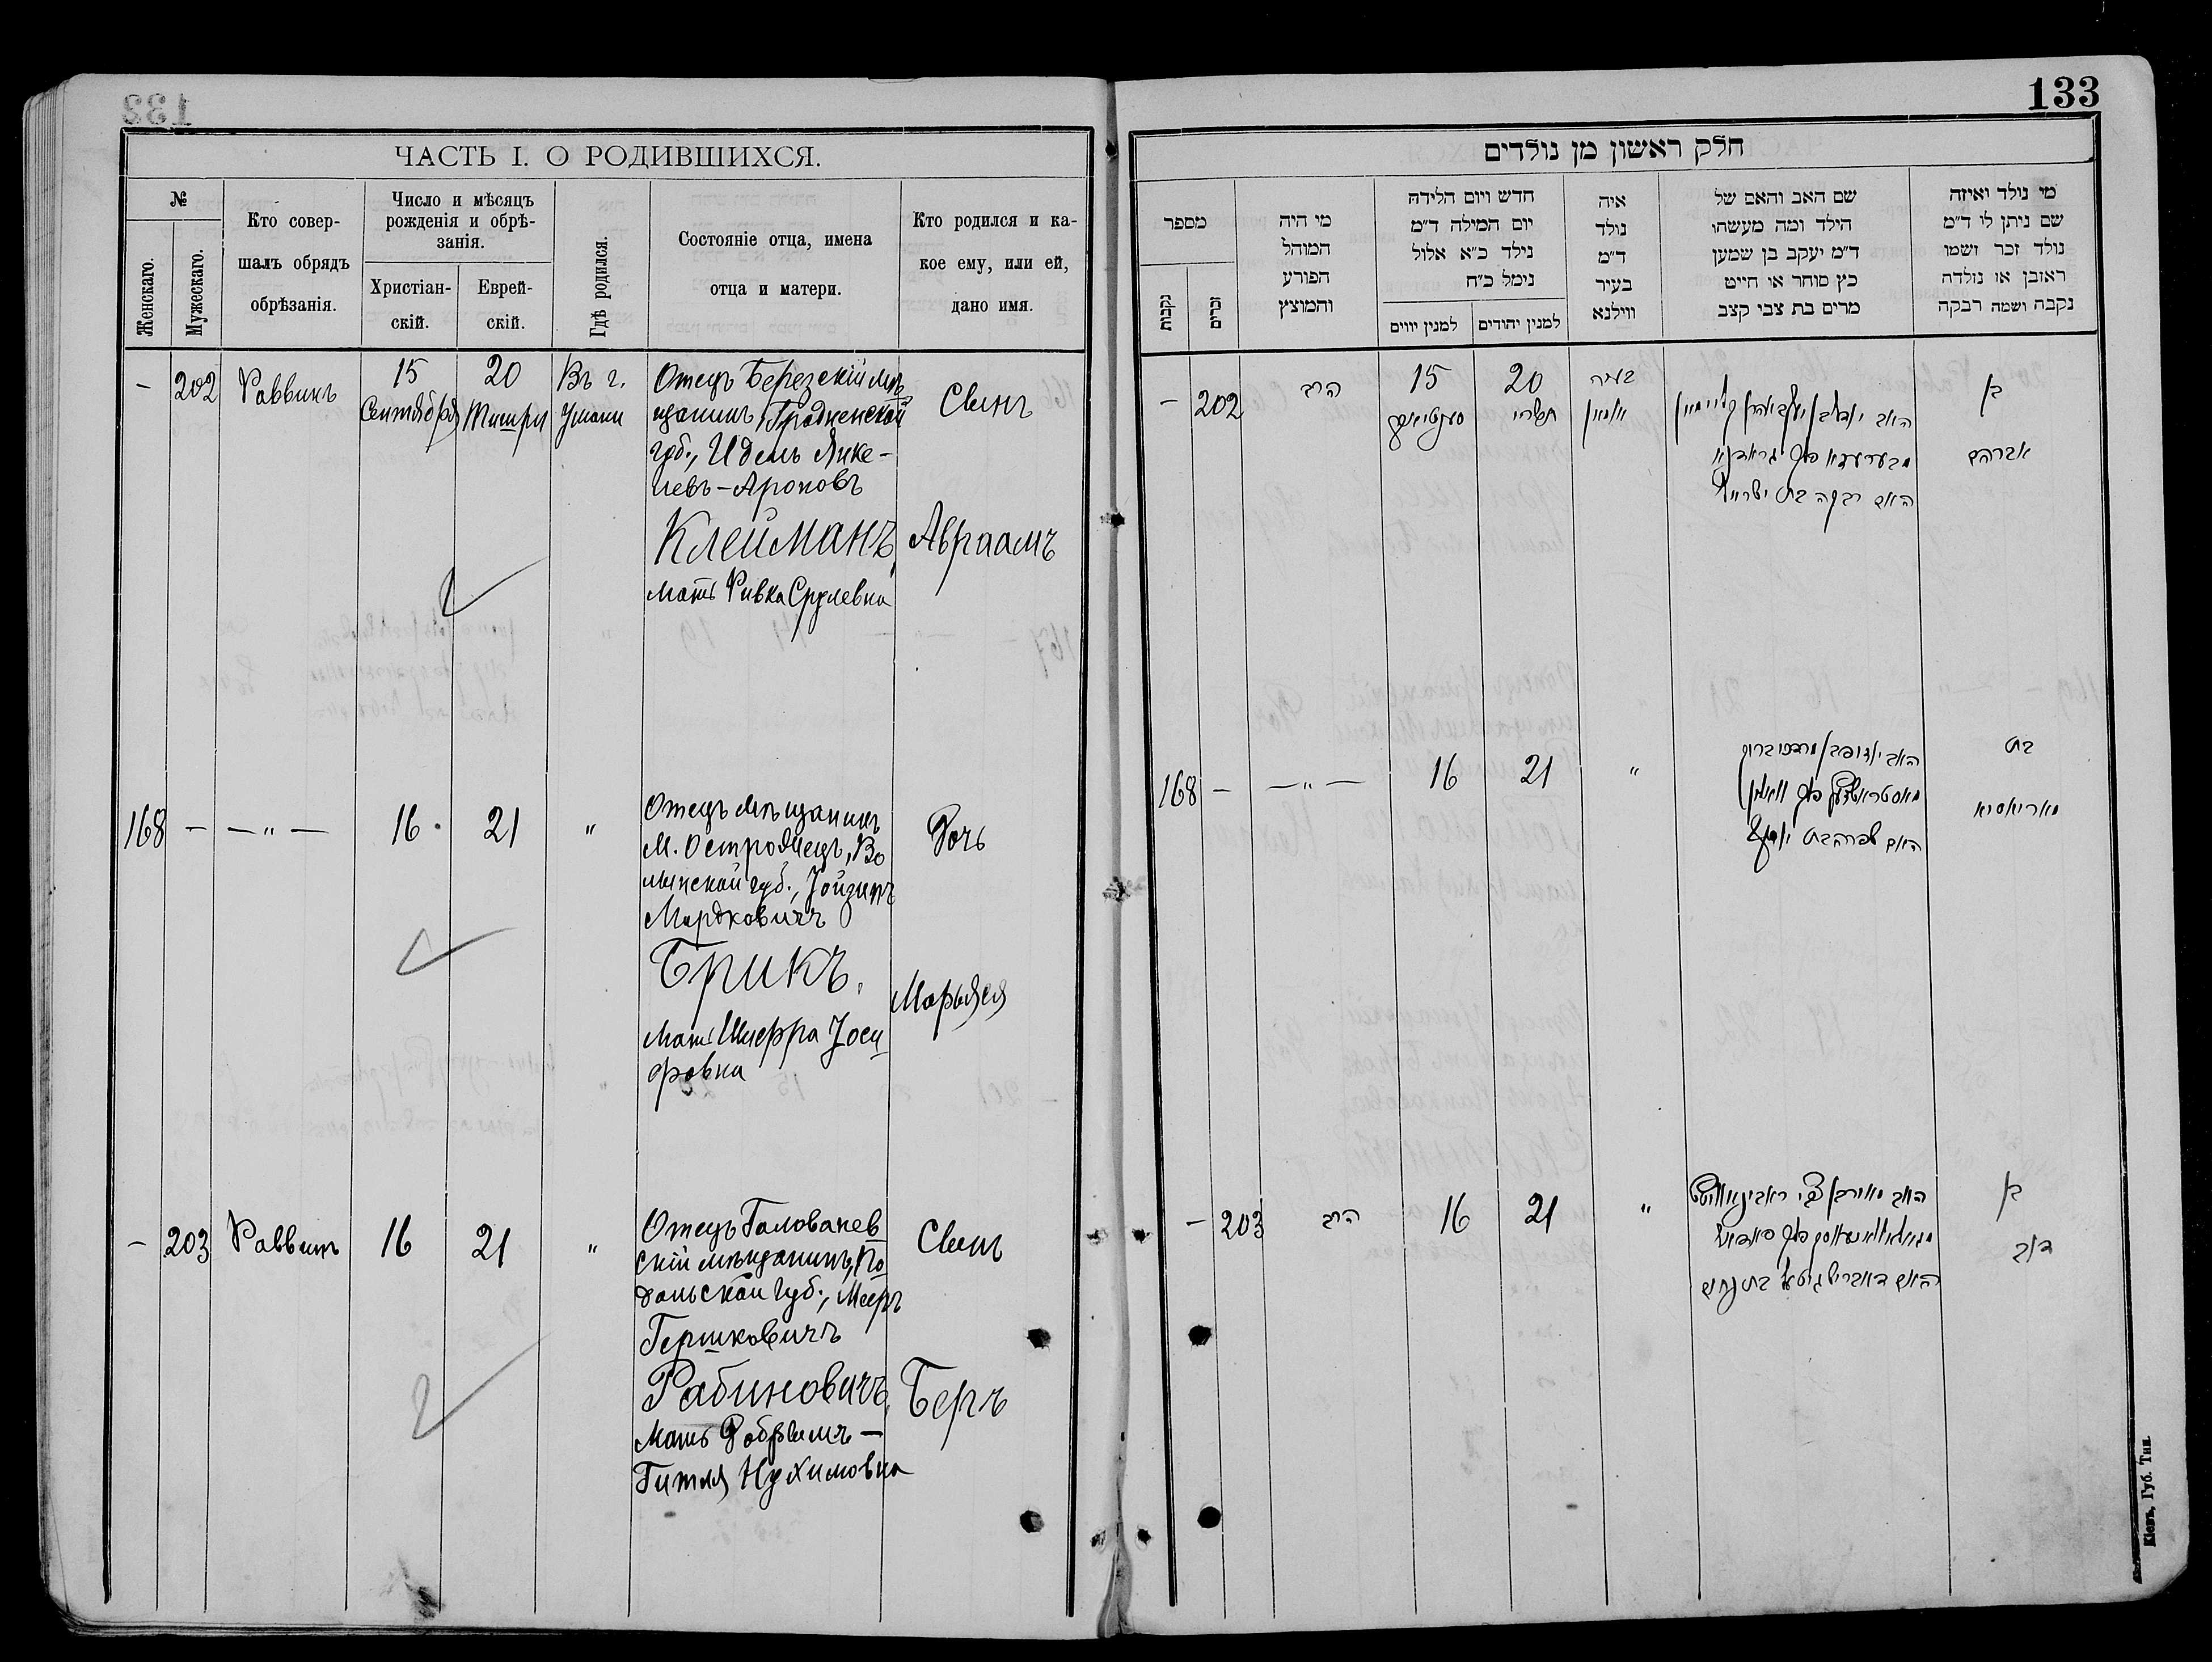 133
ЧАСТЬ I. О РОДИВШИХСЯ.
№
Женскаго.
Мужескаго.
Кто совер-
шалъ обрядъ
обрѣзанія.
Число и мѣсяцъ
рожденія и обрѣ-
занія.
Христіан-
скій.
Еврей-
скій.
Гдѣ родился.
Состояніе отца, имена
отца и матери.
Кто родился и ка-
кое ему, или ей,
дано имя.
— 202 Раввинъ
15
Сентября
20
Тишри
Въ г.
Умани
Отецъ Березскій мѣ
щанинъ, Гродненской
губ., Идель Янке-
левъ-Ароновъ
Клейманъ,
мать Ривка Срулевна
Сынъ
Авраамъ
168 — — „ — 16 21 „
Отецъ мѣщанинъ
м. Остро
Волынской губ.,
Мордковичъ
Брикъ,
мать Шифра Іоси
фовна
Дочь
Марьяся
— 203 Раввинъ 16 21 „
Отецъ Голованев
скій мѣщанинъ, По
дольской губ., Мееръ
Гершковичъ
Рабиновичъ,
мать
Гитля Нухимовна
Сынъ
Беръ
133
חלק ראשון מן נולדים
מספר
נקבות
זכרים
מי היה
המוהל
הפורע
והמוצץ
חדש ויום הלידה
יום המילה ד״מ
נילד כ״א אלול
נימל כ״ח
למנין יווים
למנין יהודים
איה
נולד
ד״מ
בעיר
ווילנא
שם האב והאם של
הילד ומה מעשהו
ד״מ יעקב בן שמען
כץ סוחר או חייט
מרים בת צבי קצב
מי נולד ואיזה
שם ניתן לו ד״מ
נולד זכר ושמו
ראובן או נולדה
נקבה ושמה רבקה
— 202 הרב
15
20
תשרי
אומאן
האב
האם רבקה בת ישראל
בן
אברהם
168 — — „ — 16 21 „
האב
האם שפרה בת יוסף
בת
מאריאסיא
— 203 הרב 16 21 „
האב מאיר בן צבי ראבינאוויטש
פלך פאדאלי
האם דאבריש גיטל בת נחום
בן
דוב
Кіевъ, Губ. Тип.